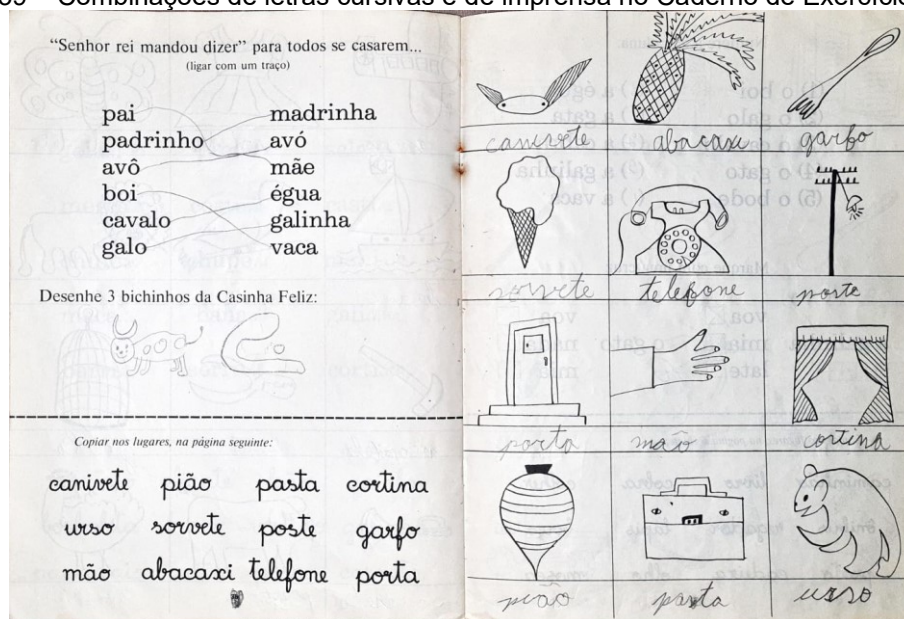 Combinações de letras cursivas e de imprensa no Caderno de Exercício
"Senhor rei mandou dizer" para todos se casarem...
(ligar com um traço)
pai madrinha
padrinho avó
avô mãe
boi égua
cavalo galinha
galo vaca
Desenhe 3 bichinhos da Casinha Feliz:
Copiar nos lugares, na página seguinte:
canivete pião pasta cortina
urso sorvete poste garfo
mão abacaxi telefone porta
canivete abacaxi garfo
sorvete telefone poste
porta mão cortina
pião pasta urso